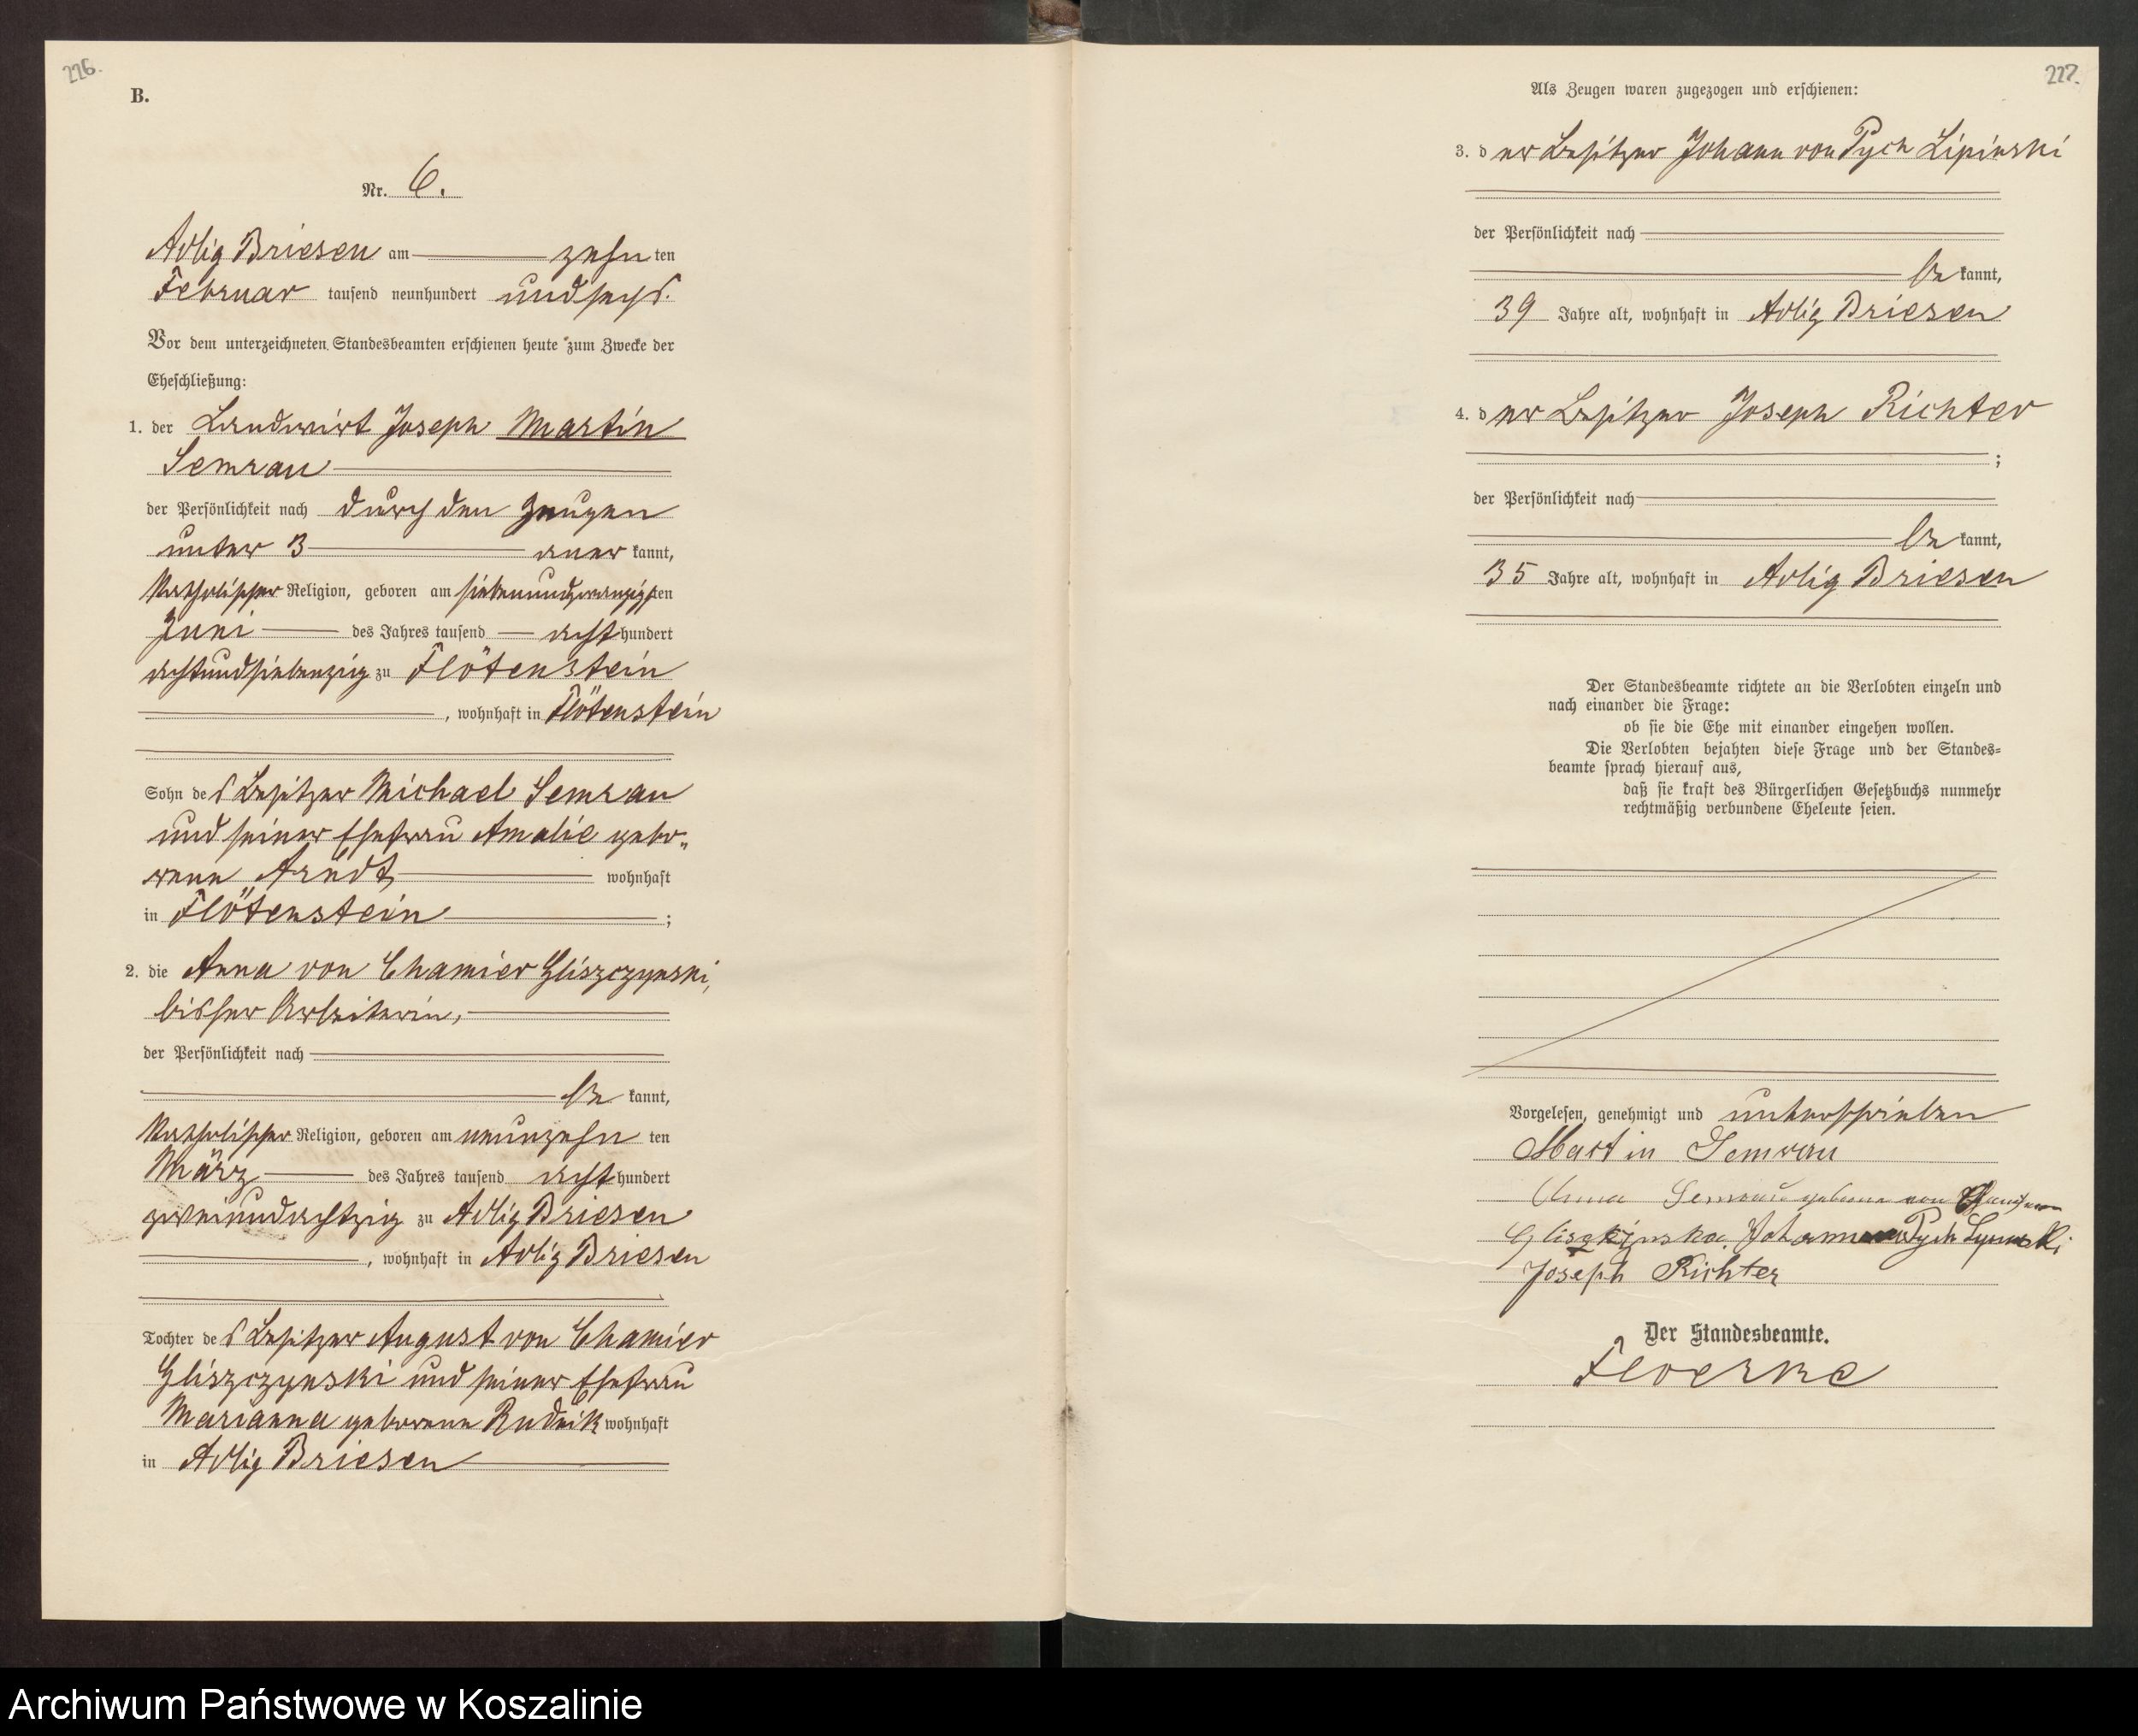 226.
B.
Nr. 6.
Adlig Briesen am zehn ten
Februar tausend neunhundert und sechs.
Vor dem unterzeichneten Standesbeamten erschienen heute zum Zwecke der
Eheschließung:
1. der Landwirt Joseph Martin
Semrau
der Persönlichkeit nach durch den Zeugen
unter 3 aner kannt,
katholischer Religion, geboren am siebenundzwanzigsten
Juni des Jahres tausend acht hundert
achtundsiebenzig zu Flötenstein
, wohnhaft in Flötenstein
Sohn des Besitzer Michael Semrau
und seiner Ehefrau Amalie gebo„
rene Arndt wohnhaft
in Flötenstein ;
2. die Anna von Chamier Gliszczynski,
bisher Arbeiterin,
der Persönlichkeit nach
be kannt,
katholischer Religion, geboren am neunzehn ten
März des Jahres tausend acht hundert
zweiundachtzig zu Adlig Briesen
, wohnhaft in Adlig Briesen
Tochter des Besitzer August von Chamier
Gliszczynski und seiner Ehefrau
Marianna geborene Rudnik wohnhaft
in Adlig Briesen
227.
Als Zeugen waren zugezogen und erschienen:
3. der Besitzer Johann von Pych Lipinski
der Persönlichkeit nach
be kannt,
39 Jahre alt, wohnhaft in Adlig Briesen
4. der Besitzer Joseph Richter
;
der Persönlichkeit nach
be kannt,
35 Jahre alt, wohnhaft in Adlig Briesen
Der Standesbeamte richtete an die Verlobten einzeln und
nach einander die Frage:
ob sie die Ehe mit einander eingehen wollen.
Die Verlobten bejahten diese Frage und der Standes-
beamte sprach hierauf aus,
daß sie kraft des Bürgerlichen Gesetzbuchs nunmehr
rechtmäßig verbundene Eheleute seien.
Vorgelesen, genehmigt und unterschrieben
Martin Semrau
Anna Semrau geborene von
Johann Pych
Joseph Richter
Der Standesbeamte.
Floerke
Archiwum Państwowe w Koszalinie